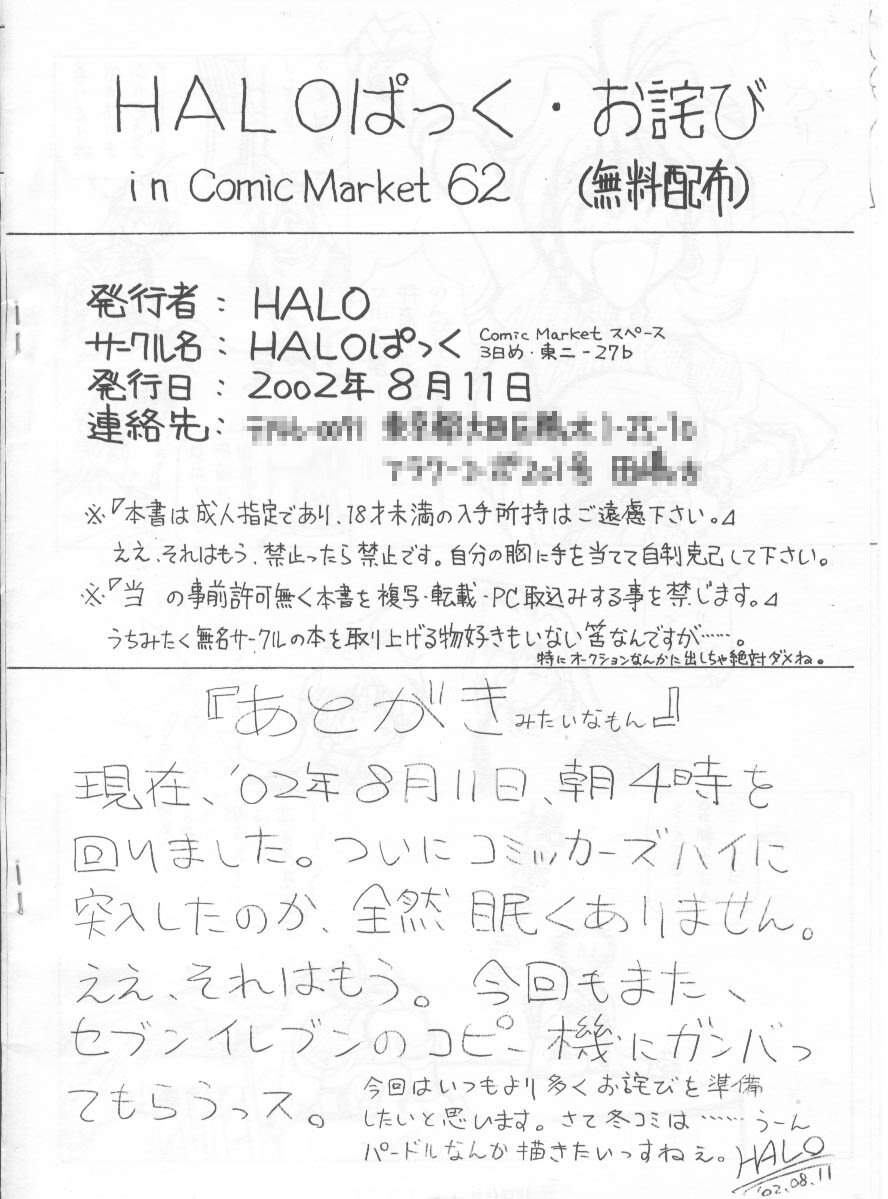 HALOぱっく・お詫び
in Comic Market 62 (無料配布)
発行者：HALO
サークル名：HALOぱっく Comic Market スペース
3日め・東ニ-27b
発行日：2002年8月11日
連絡先：
※『本書は成人指定であり、18才未満の入手所持はご遠慮下さい。』
ええ、それはもう、禁止ったら禁止です。自分の胸に手を当てて自制克己して下さい。
※『当 の事前許可無く本書を複写・転載・PC取込みする事を禁じます。』
うちみたく無名サークルの本を取り上げる物好きもいない筈なんですが……。
特にオークションなんかに出しちゃ絶対ダメね。
『あとがきみたいなもん』
現在、'02年8月11日、朝4時を
回りました。ついにコミッカーズハイに
突入したのか、全然眠くありません。
ええ、それはもう。今回もまた、
セブンイレブンのコピー機にガンバっ
てもらうっス。
今回はいつもより多くお詫びを準備
したいと思います。さて冬コミは……うーん
パードルなんか描きたいっすねぇ。
HALO
'02.08.11